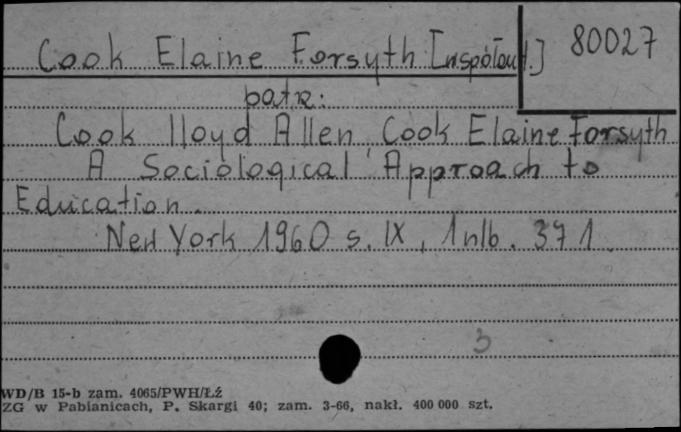 Cook Elaine Forsyth [współaut.] 80027
patrz:
Cook Lloyd Allen, Cook Elaine Forsyth
A Sociological Approach to
Education.
New York 1960 s. IX, 1 nlb. 371.
3
WD/B 15-b zam. 4065/PWH/Łź
ZG w Pabianicach, P. Skargi 40; zam. 3-66, nakł. 400 000 szt.